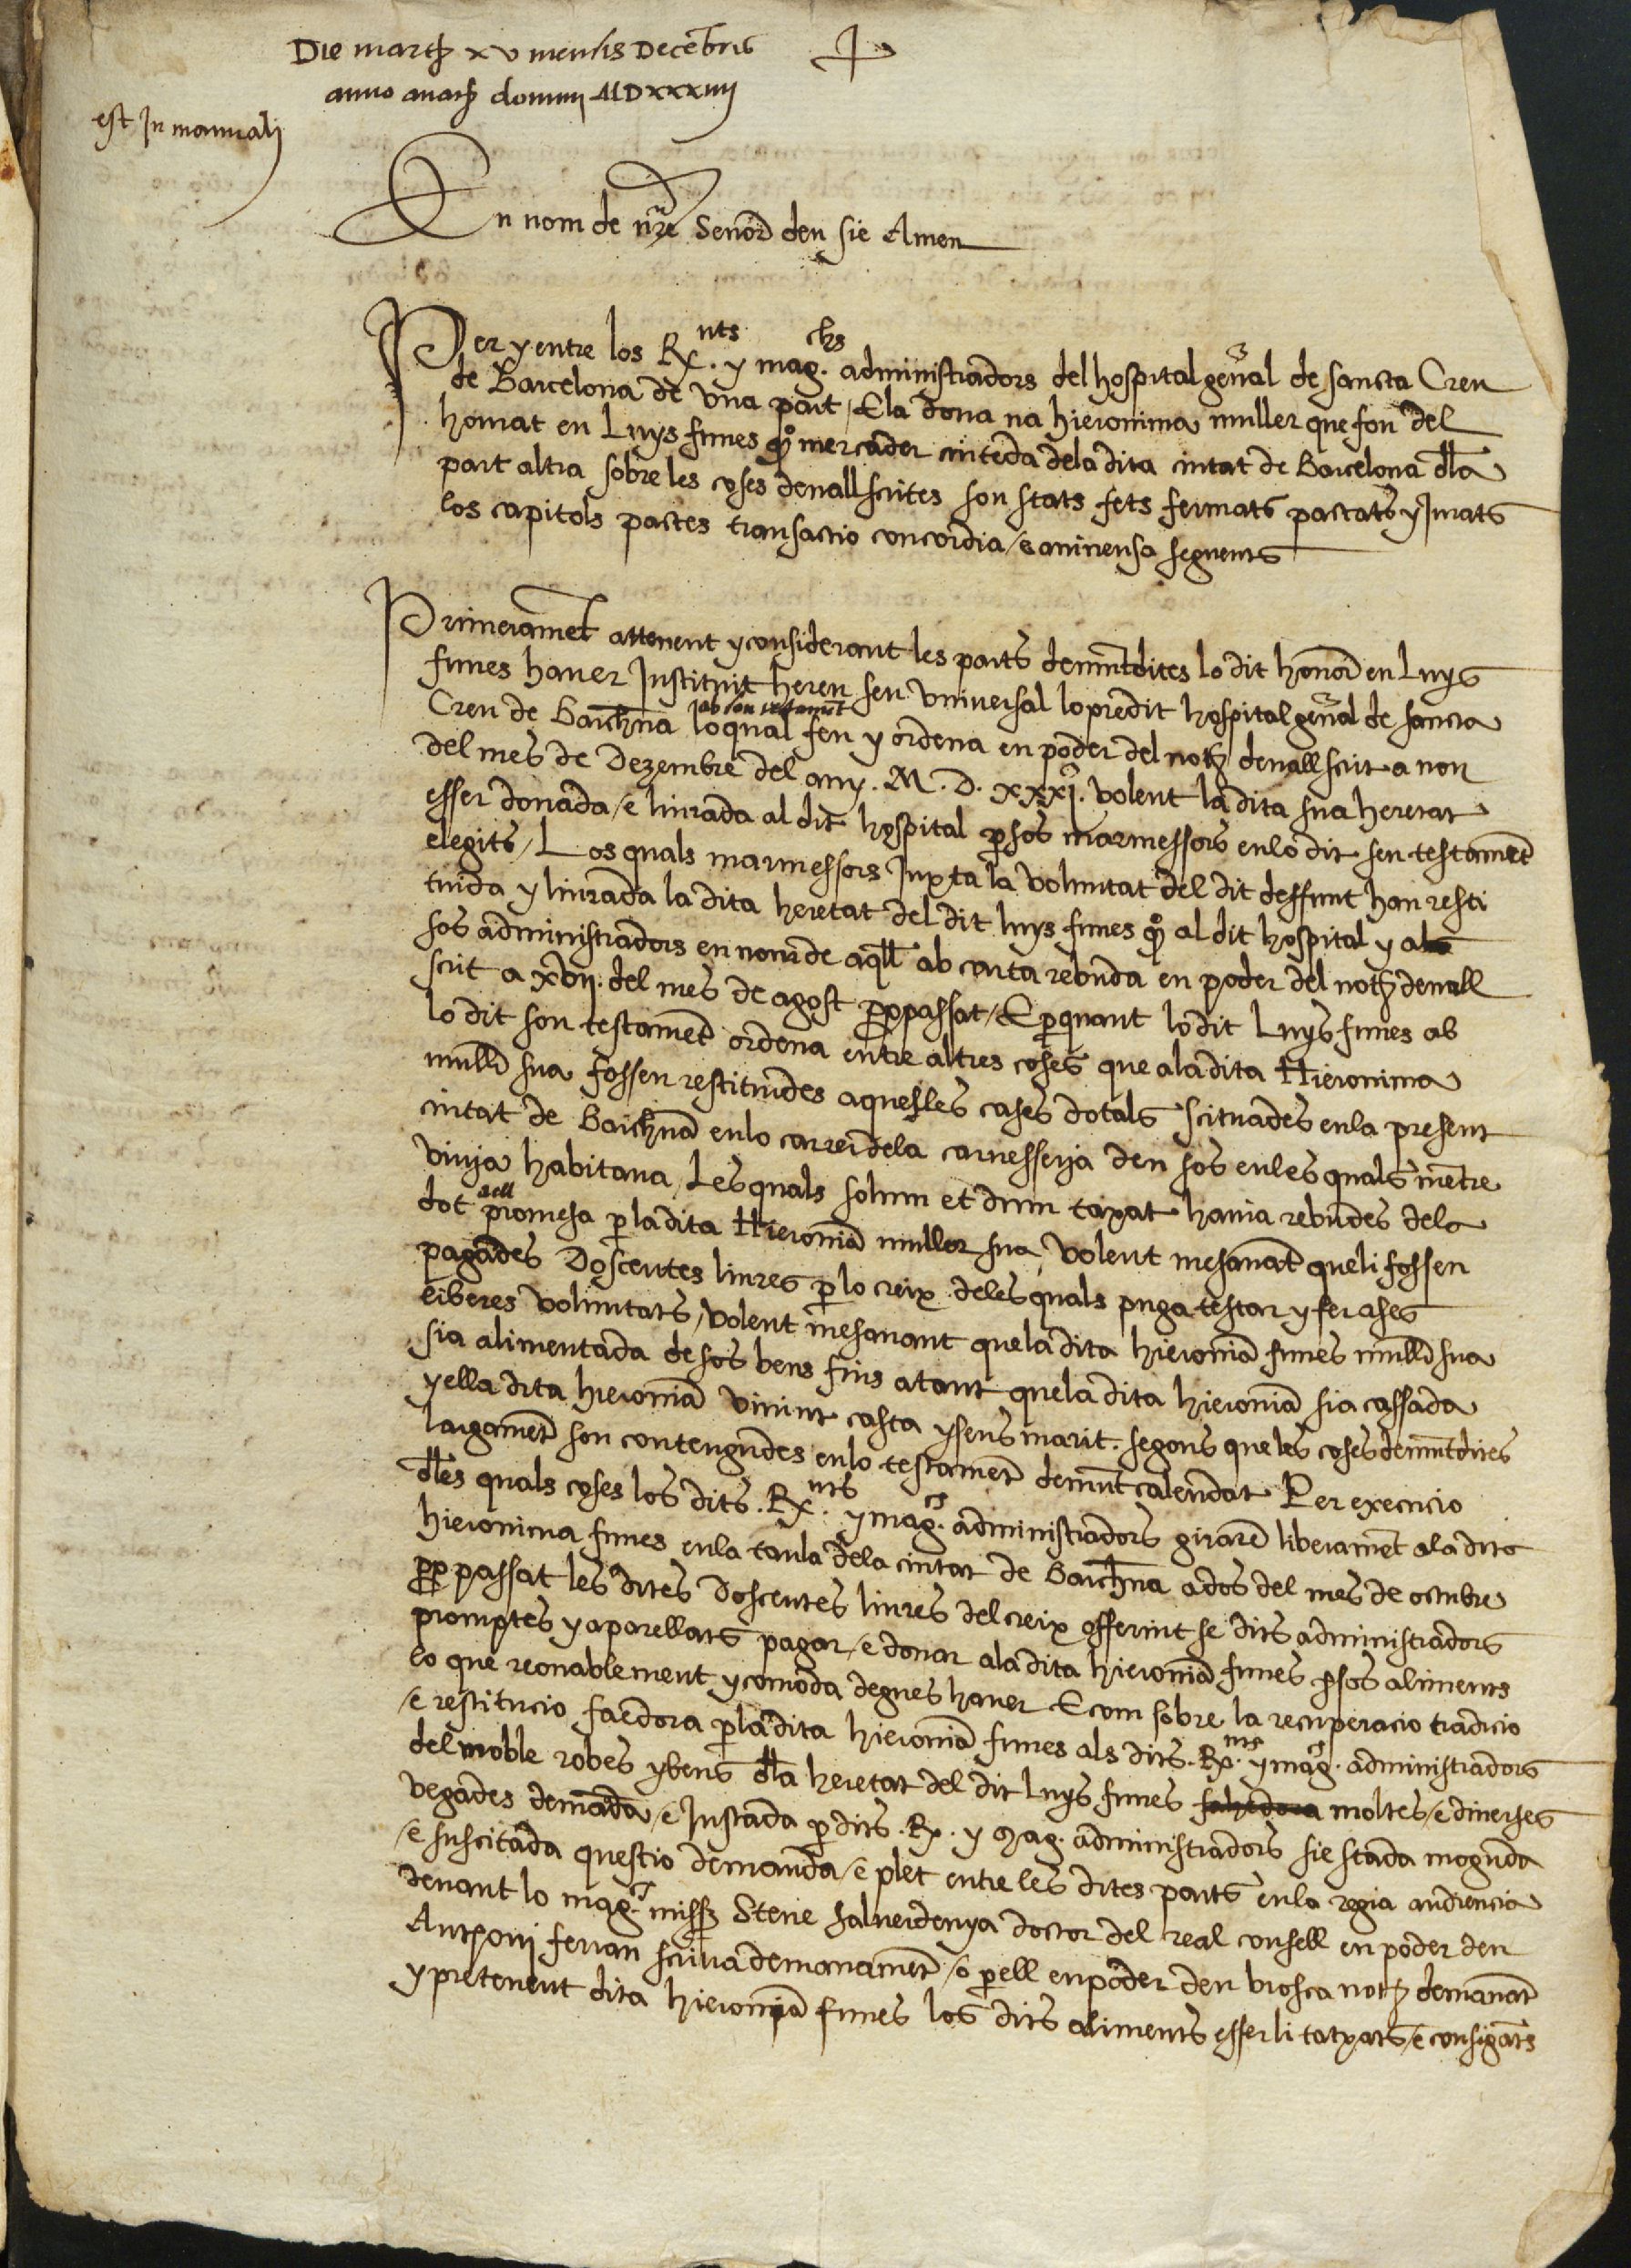 Die martȷ xv mensis Decēbris
anno a natȷ domini MDxxxiiij
est in manuali
En nom de nr̄e Senor deu sie Amen
Per y entre los Rx.nts y mag.chs administradors del hospital gen̄al de sancta Creu
de Barcelona de vna part / E la dona na hieronima muller que fon del
honrat en Luys funes qo mercader ciutedà dela dita ciutat de Barcelona dl̄a
part altra sobre les coses deuall scrites son stats fets fermats pactats y jurats
los capitols pactes transactio concordia / e auinensa seguents
Primeramēt attenent y considerant les parts demūtdites lo dit honor en Luys
funes hauer Instituit hereu seu vniversal lo predit hospital gen̄al de sancta
Creu de Barchn̄a ab son testamēt lo qual feu y ordena en poder del notȷ deuall scrit a nou
del mes de Dezembre del any. M. D. xxxj. volent la dita sua heretat
esser donada / e liurada al dit hospital p̱ sos marmessors en lo dit seu testamēt
elegits / Los quals marmessors Juxta la voluntat del dit deffunt han resti
tuida y liurada la dita heretat del dit luys funes qo al dit hospital y als
sos administradors en nom de aq̄ll ab carta rebuda en poder del notȷ deuall
scrit a xvij. del mes de agost p̱p̱passat / E p̱quant lo dit Luys funes ab
lo dit son testamēt ordena entre altres coses que ala dita Hieronima
mullr̄ sua fossen restituides aquesles cases dotals scituades en la present
ciutat de Barchn̄a en lo carrer dela carnesseria den sos en les quals mētre
viuia habitaua / Les quals solum et dum taxat hauia rebudes dela
dot a ell promesa p̱ la dita Hieronīa muller sua, volent mes auāt que li fossen
pagades Doscentes liures p̱ lo creix deles quals puga testar y fer a ses
liberes voluntats, volent mes auant que la dita hieronīa funes mullr̄ sua
sia alimentada de sos bens fins a tant que la dita hieronīa sia cassada
y ella dita hieronīa viuint casta y sens marit. segons que les coses demūtdites
largamēt son contengudes en lo testamēt demūt calendat Per execucio
dl̄es quals coses los dits. Rx.nts y mag.cs administradors girarē liberamēt ala dita
hieronima funes en la taula dela ciutat de Barchn̄a a dos del mes de octubre
p̱p̱ passat les dites doscentes liures del creix offerint se dits administradors
promptes y aparellats pagar / e donar ala dita hieronīa funes p̱ sos aliments
lo que reonablement y comoda degues hauer E com sobre la recuperacio tradicio
/ e restitucio faedora p̱ la dita hieronīa funes als dits. Rx.nts y mag.cs administradors
del moble robes y bens dl̄a heretat del dit Luys funes fahedora moltes / e diuerses
vegades demāda / e Instada p̱ dits. Rx. y Mag. administradors sie stada moguda
/ e suscitada questio demanda / e plet entre les dites parts en la regia audiencia
deuant lo mag.ch missȷ Steue Salverdenya doctor del real consell en poder den
Anthoni ferran scriua de manamēt / o p̱ ell en poder den brosca notȷ demanāt
y pretenent dita hieronīa funes los dits aliments esser li tatxats / e consigāts